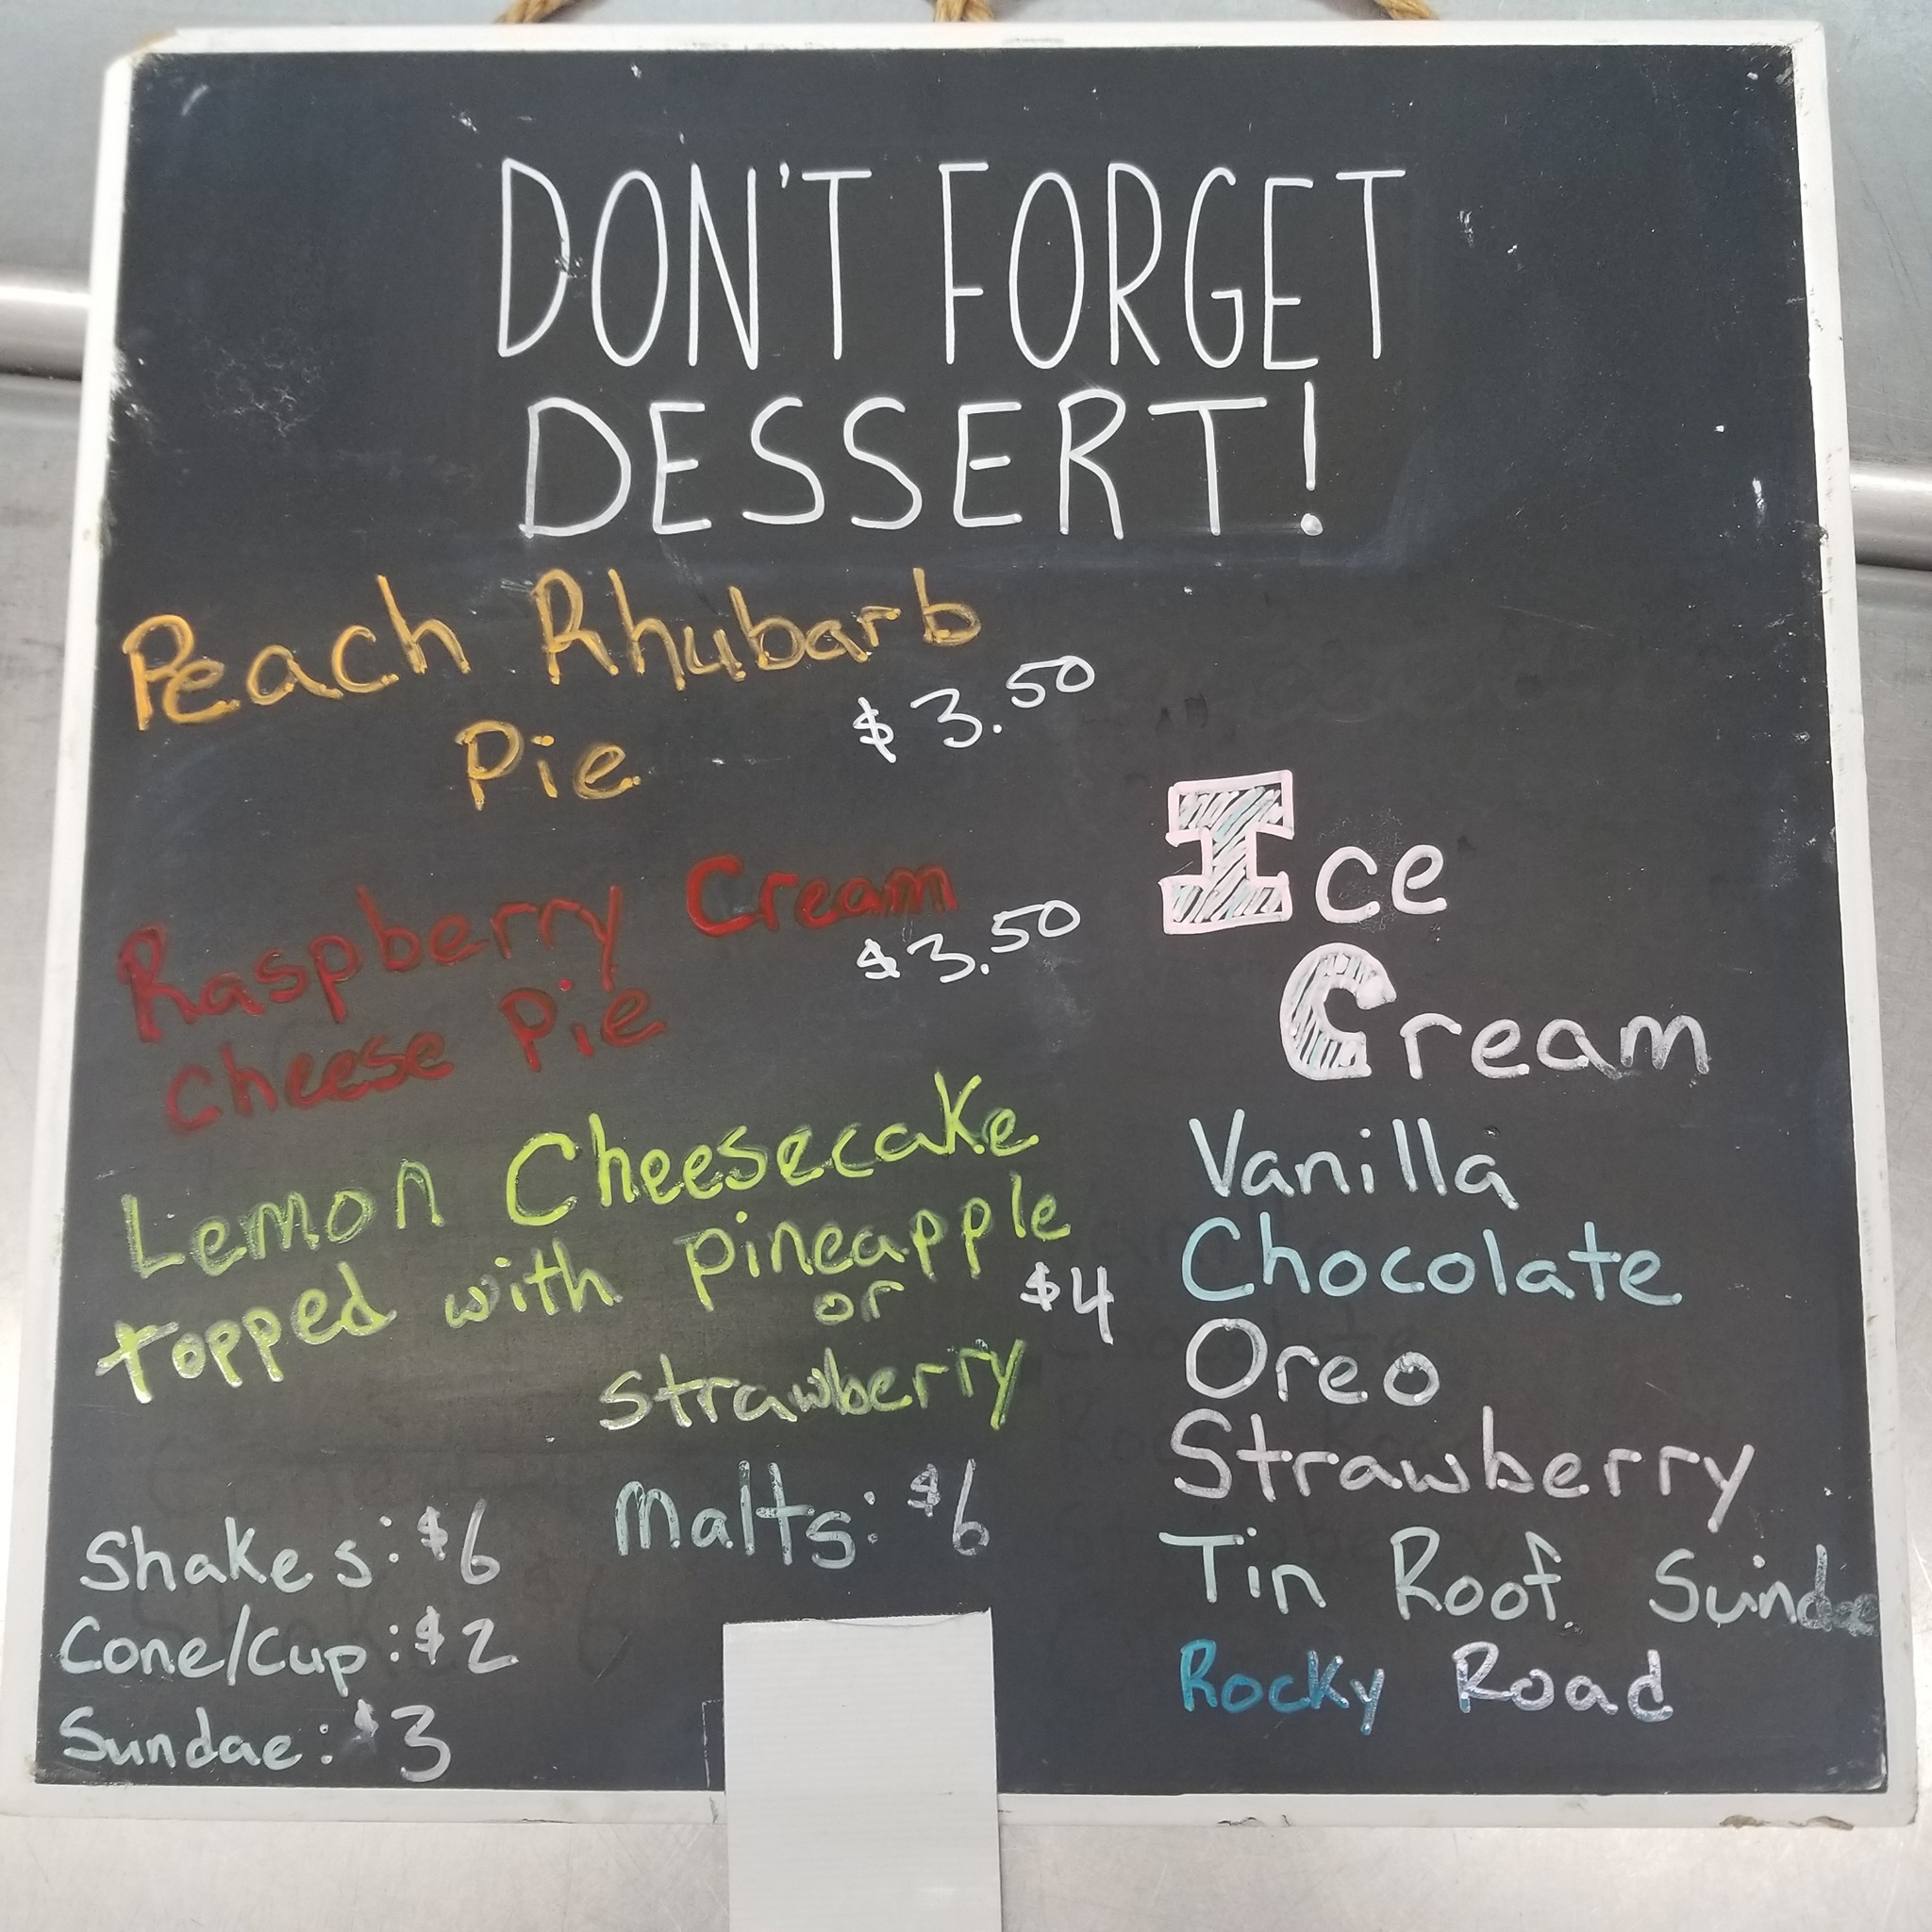 DON'T FORGET
DESSERT!
Peach Rhubarb
Pie $3.50
Raspberry Cream
Cheese Pie $3.50
Lemon Cheesecake
topped with pineapple
or $4
strawberry
Malts: $6
Shakes: $6
Cone/Cup: $2
Sundae: $3
Ice
Cream
Vanilla
Chocolate
Oreo
Strawberry
Tin Roof Sundae
Rocky Road